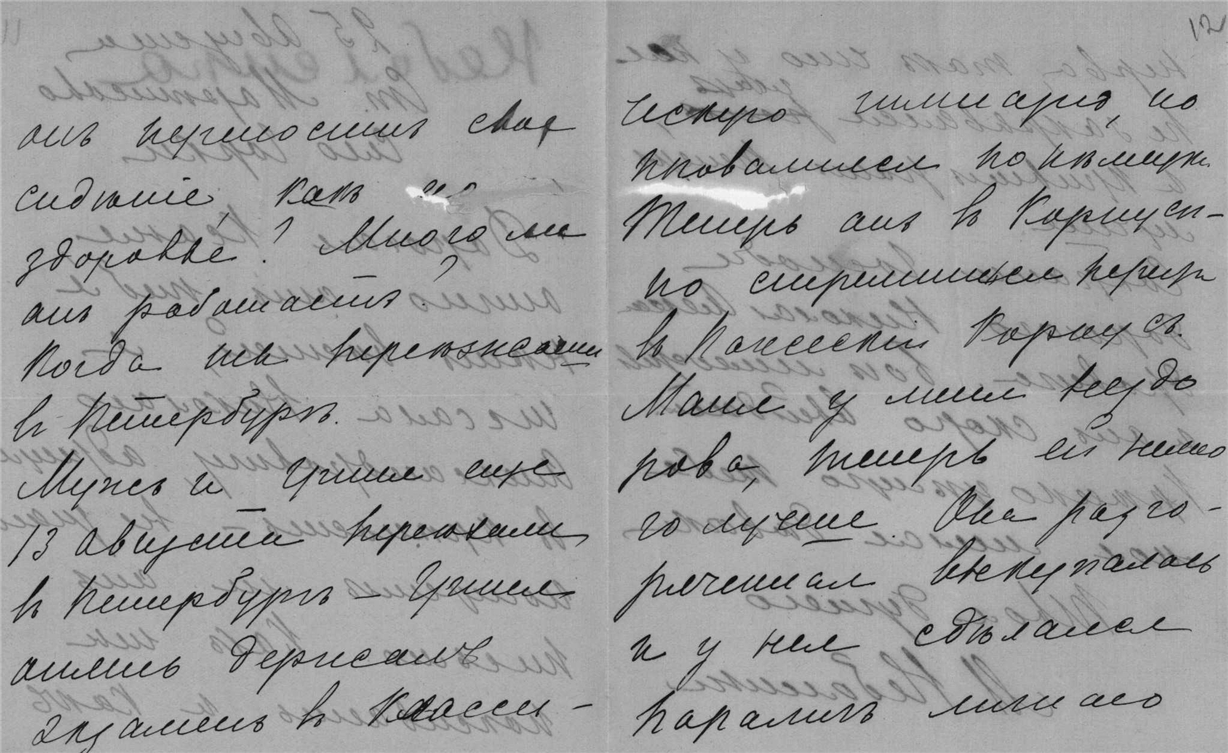 онъ переноситъ свое
сидѣніе, какъ его
здоровье? Много ли
онъ работаетъ?
Когда ты переѣзжаешь
въ Петербургъ.
Мужъ и Гриша еще
13 августа переѣхали
въ Петербургъ — Гриша
опять держалъ
экзаменъ въ Класси-
12
ческую гимназію, но
провалился по нѣмецк.
Теперь онъ въ Корпусѣ-
но стремится перейти
въ Пажескій Корпусъ.
Маня у меня нездо
рова, теперь ей немно
го лучше. Она разго-
ряченная выкупалась
и у нея сдѣлался
параличъ личнаго